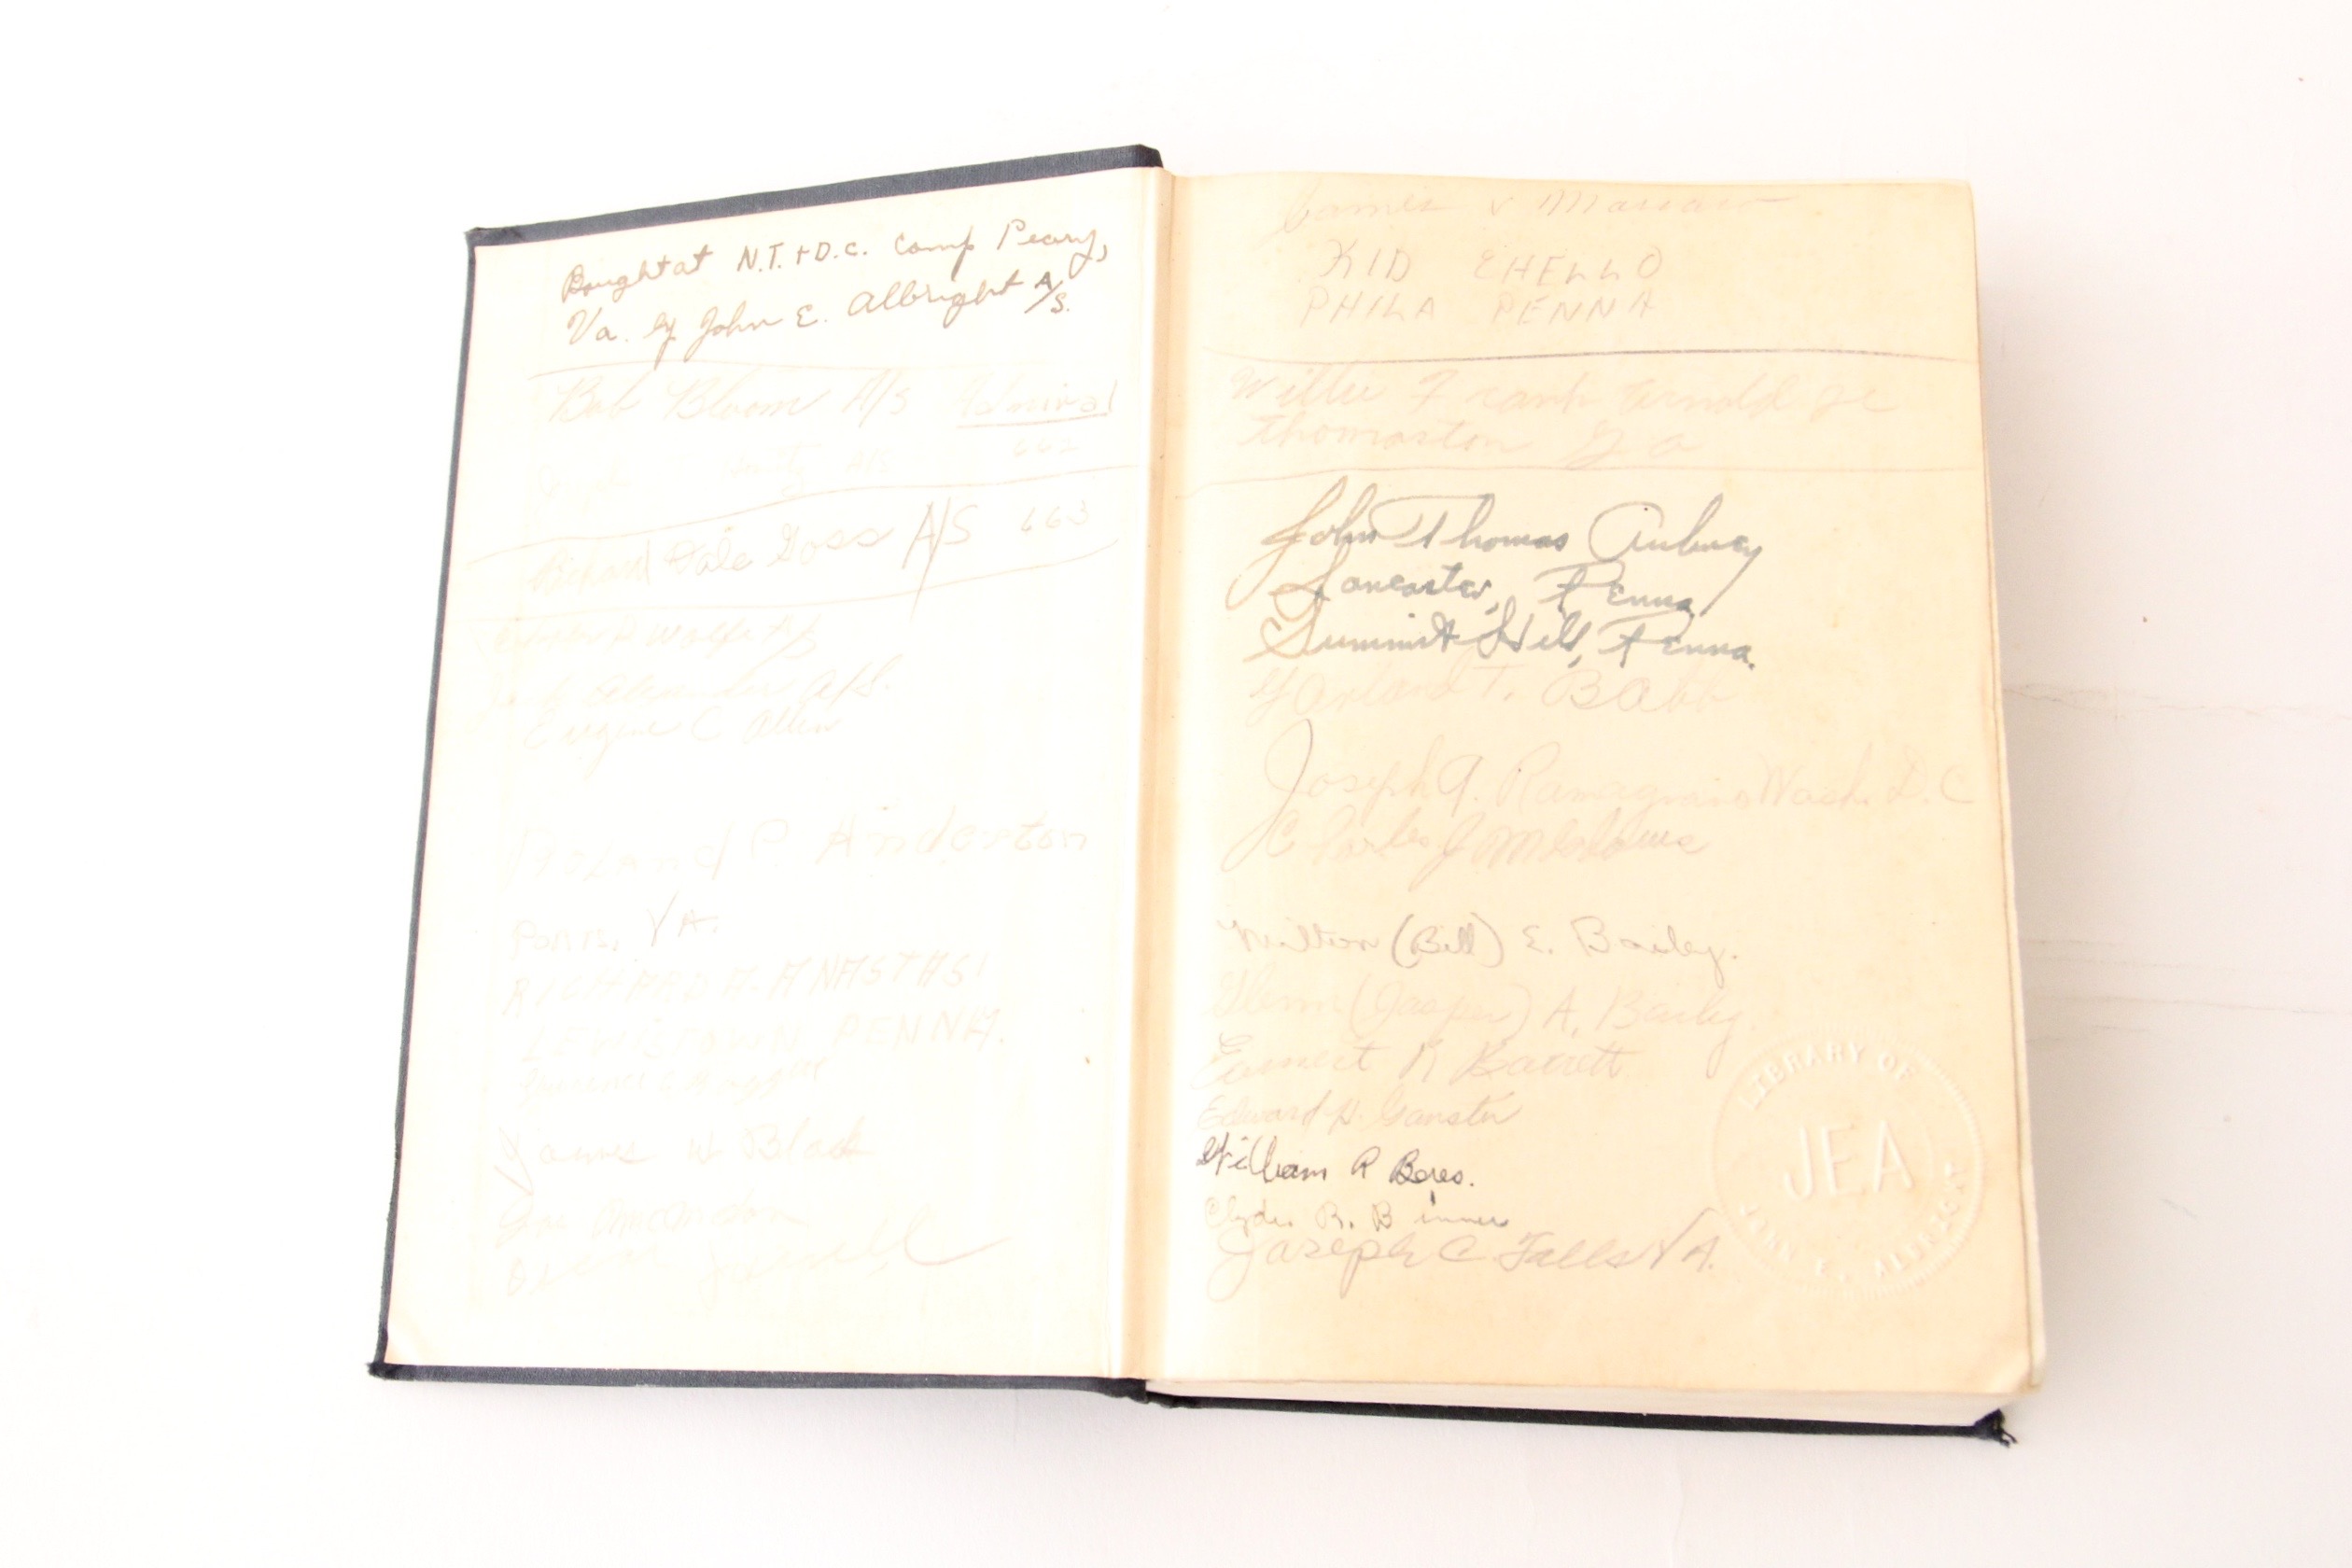 Bought at N.T. + D.C. Camp Peary,
Va. by John E. Albright A/S.
Bob Bloom A/S Admiral
662
Richard Dale Goss A/S 663
Wolfe A/S
Alexander A/S.
Eugene C Allen
Roland P. Anderton
VA.
RICHARD A. ANASTASI
LEWISTOWN PENNA.
James W Black
James V
KID CHELLO
PHILA PENNA
Willie Frank Arnold Jr
Thomaston Ga
John Thomas Aubrey
Lancaster, Penna.
Summit Hill, Penna.
Garland T. Babb
Joseph A. Wash. D.C
Charles J
Milton (Bill) E. Bailey.
Glenn (Jasper) A. Baily
Earnest R Barrett
Edward H. Ganster
William R Beres.
Clyde R. Binner
Joseph C Falls VA.
LIBRARY OF
JEA
JOHN E. ALBRIGHT